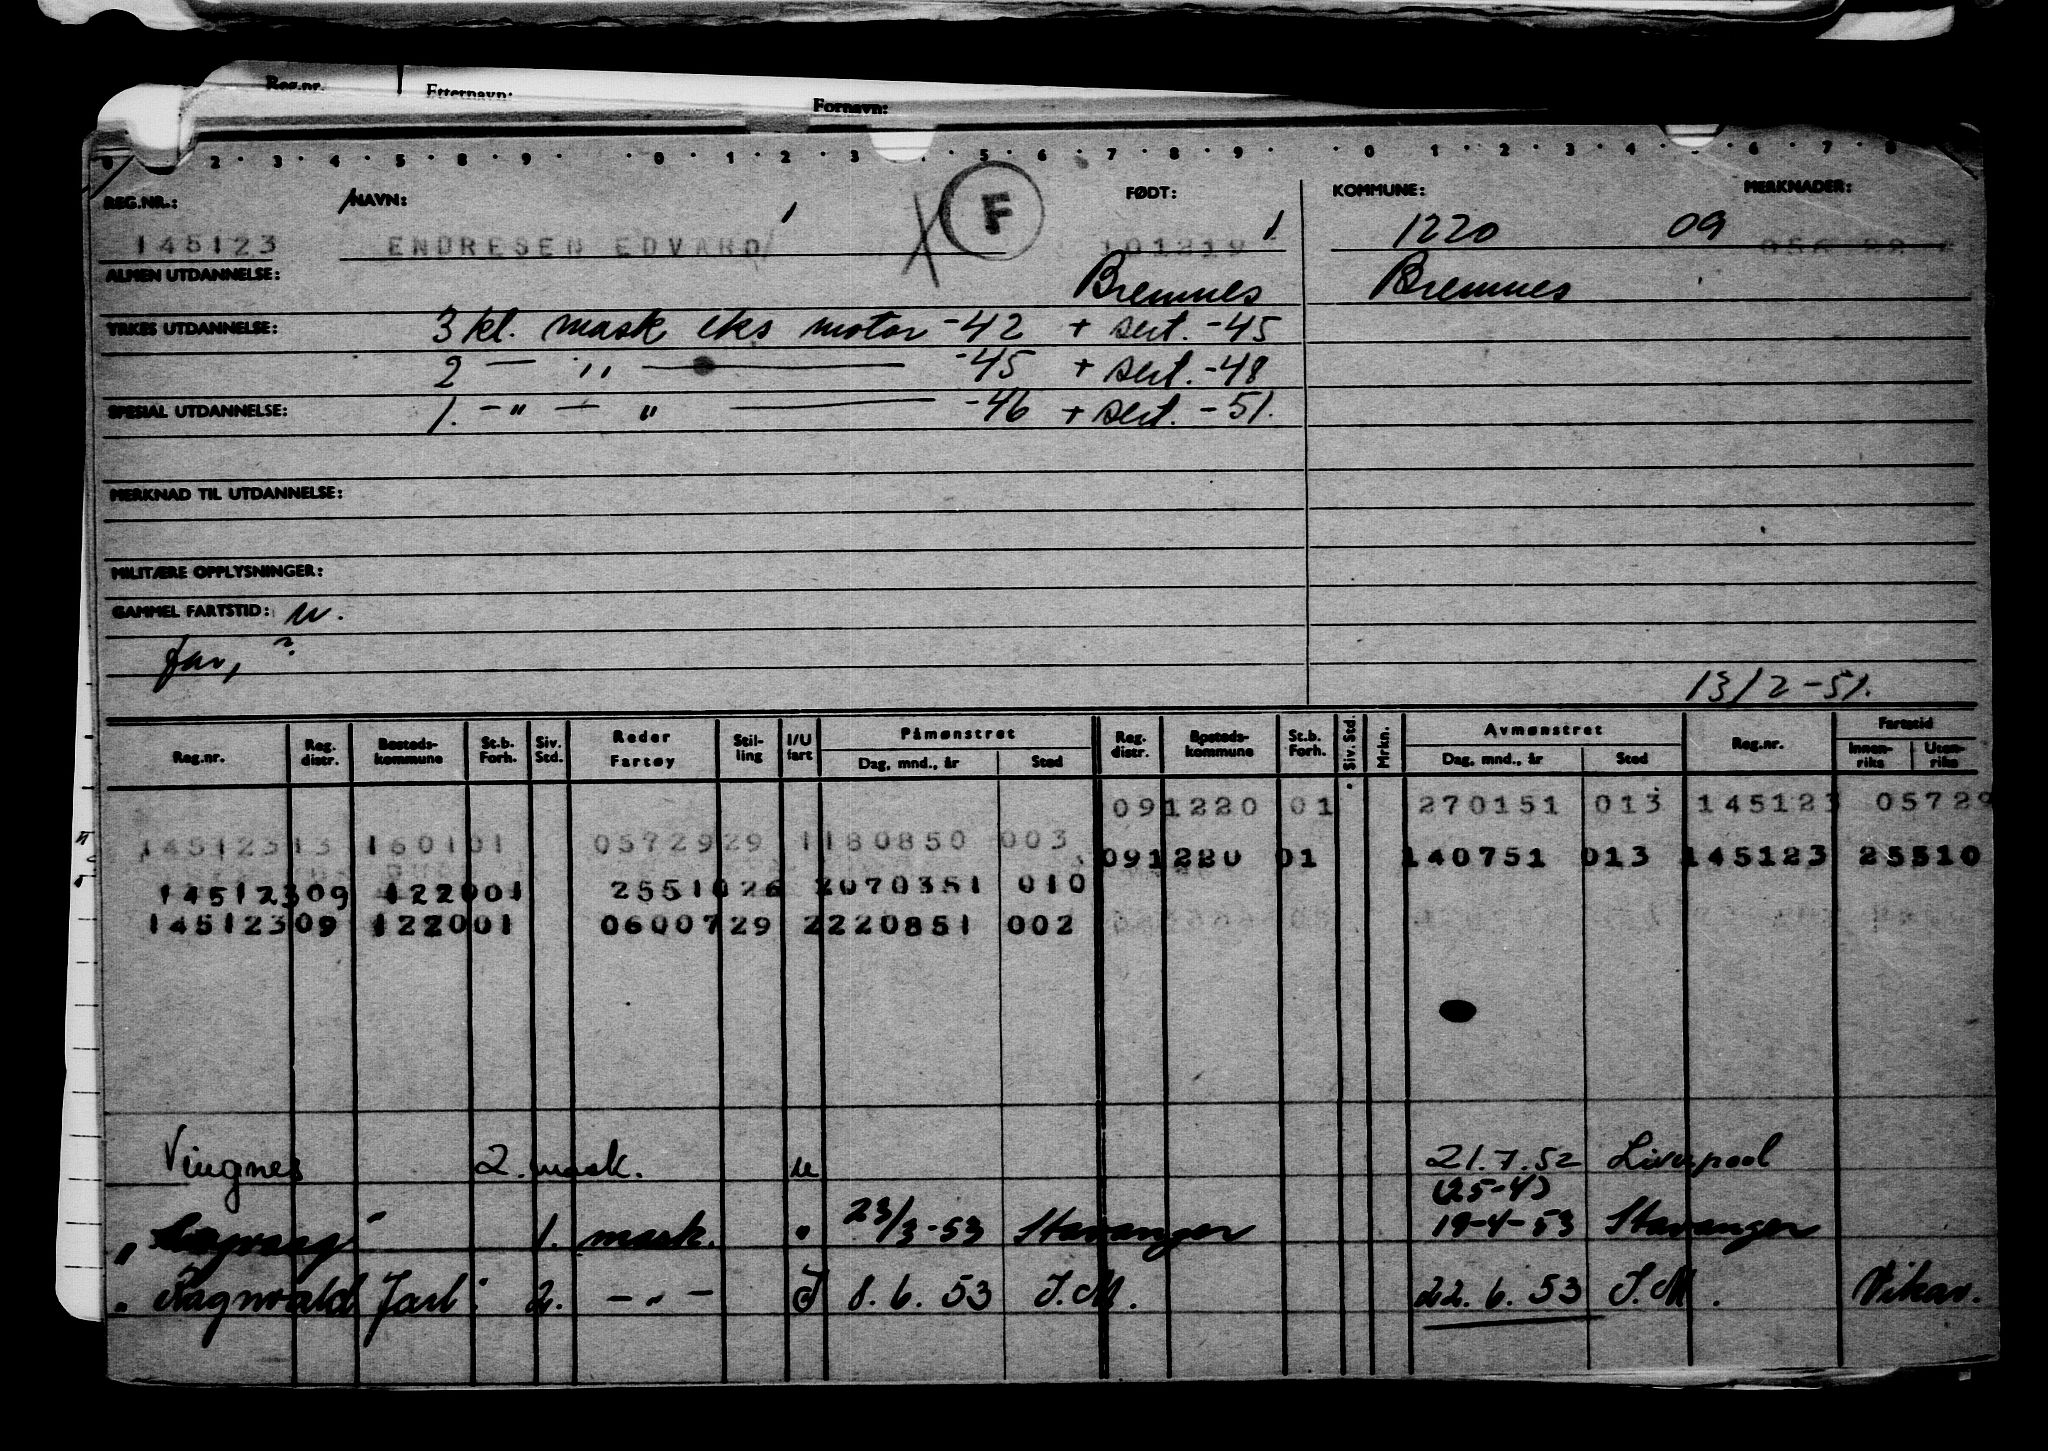 Reg.nr. Etternavn: Fornavn:
0 2 3 4 5 8 9 0 1 2 3 5 6 7 8 9 0 1 2 3 4 6 7 8
REG.NR.: NAVN: F FØDT: KOMMUNE: MERKNADER:
145123 ENDRESEN EDVARD 101219 1220 09
ALMEN UTDANNELSE: Bremnes Bremnes
YRKES UTDANNELSE: 3 kl. mask eks motor -42 + sert. -45
2 — " — -45 + sert. -48
SPESIAL UTDANNELSE: 1. - " — " — -46 + sert. -51.
MERKNAD TIL UTDANNELSE:
MILITÆRE OPPLYSNINGER:
GAMMEL FARTSTID: u.
far, ?
13/2-51.
Reg.nr. Reg. distr. Bosteds-kommune St.b. Forh. Siv. Std. Reder Fartøy Stil-ling I/U fart Påmønstret Dag, mnd., år Sted Reg. distr. Bosteds-kommune St.b. Forh. Siv. Std. Mrkn. Avmønstret Dag, mnd., år Sted Reg.nr. Fartstid Innen-riks Uten-riks
091220 01 270151 013 145123 05729
14512313 160101 0572929 1180850 003
091220 01 140751 013 145123 25510
14512309 122001 2551026 2070351 010
14512309 122001 0600729 2220851 002
Vingnes 2. mask. u 21.7.52 Liverpool
(25-4)
" 1. mask. " 23/3-53 Stavanger 19-4-53 Stavanger
" Ragnvald Jarl 2. - " - I 8.6.53 I.M. 22.6.53 I.M. Vikar.